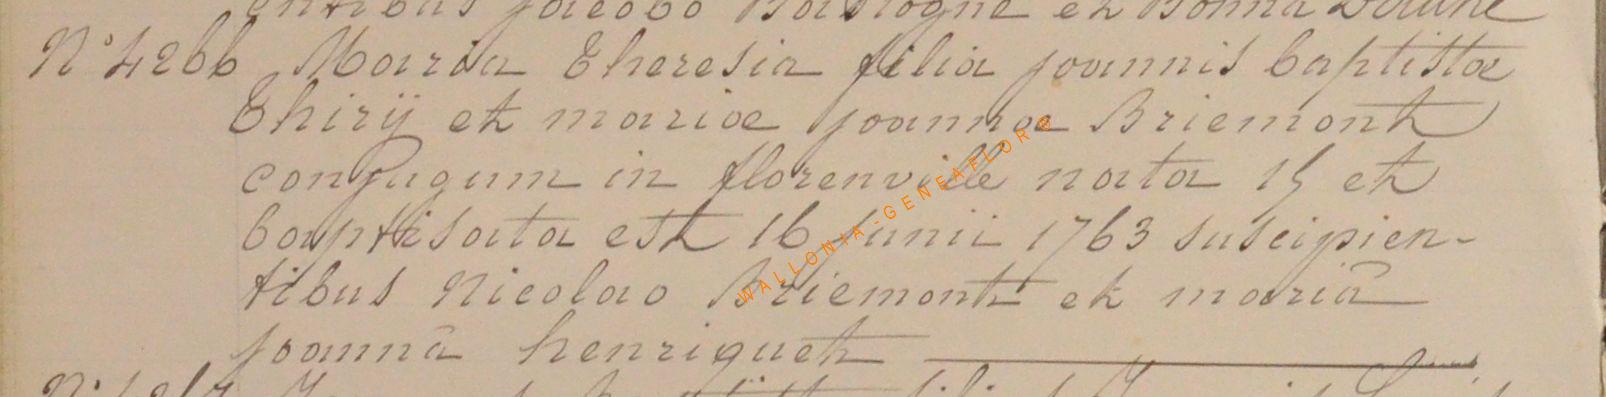 entibus jacobo Bastogne et Bonna
N° 4266 Maria Theresia filia joannis baptistae
Thirÿ et mariae joannae Briemont
conjugum in florenville nata 15 et
baptisata est 16 junii 1763 suscipien-
tibus Nicolao Briemont et mariâ
joannâ henriquet
WALLONIA-GENEAFLOR®